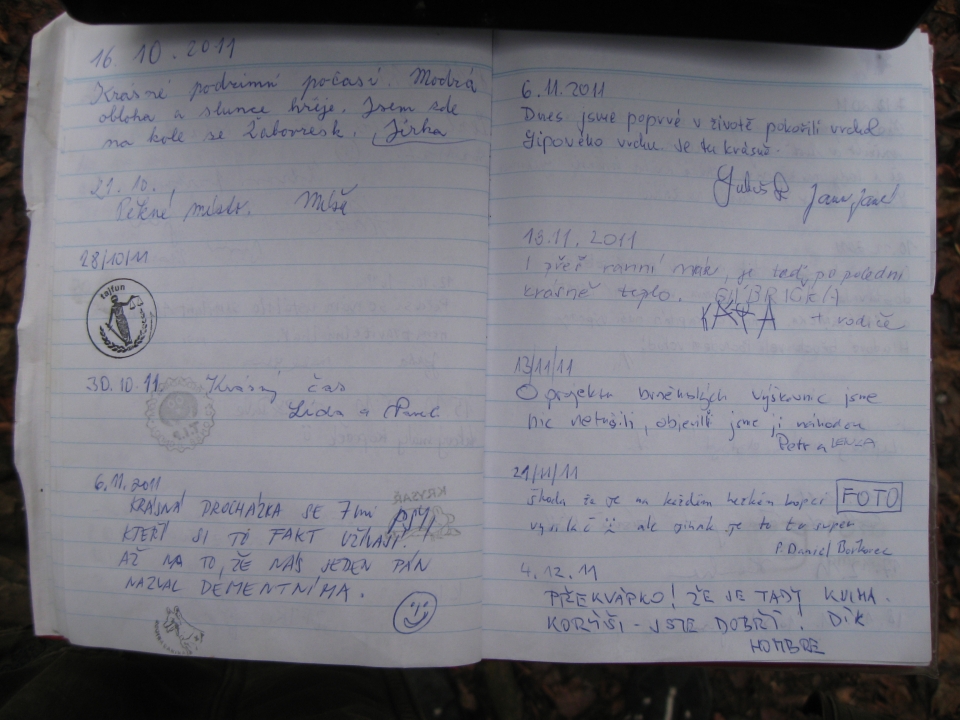 16. 10. 2011
Krásné podzimní počasí. Modrá
obloha a slunce hřeje. Jsem zde
na kole se Žabovřesk. Jirka
21. 10.
Pěkné místo. Míša
28/10/11
taifun
30.10.11 Krásný čas
Lída a Pavel
6.11.2011
KRÁSNÁ PROCHÁZKA SE 7mi psy,
KTEŘÍ SI TO FAKT UŽÍVAJÍ.
AŽ NA TO, ŽE NÁS JEDEN PÁN
NAZVAL DÉMENTNÍMA.
KRYSAŘ
6.11.2011
Dnes jsme poprvé v životě pokořili vrchol
Sípového vrchu. Je tu krásně.
13.11.2011
I přes ranní mák, je teď po poledni
krásně teplo.
KÁŤA + rodiče
13/11/11
O projektu brněnských výškovnic jsme
nic netušili, objevili jsme ji náhodou
Petr a LENKA
21/11/11
škoda že je na každém hezkém kopci
FOTO
vysílač ale jinak je to tu super
P. Daniel
4.12.11
PŘEKVÁPKO! ŽE JE TADY KNIHA.
KORMIŠI - JSTE DOBŘÍ! DÍK
HOMBRE